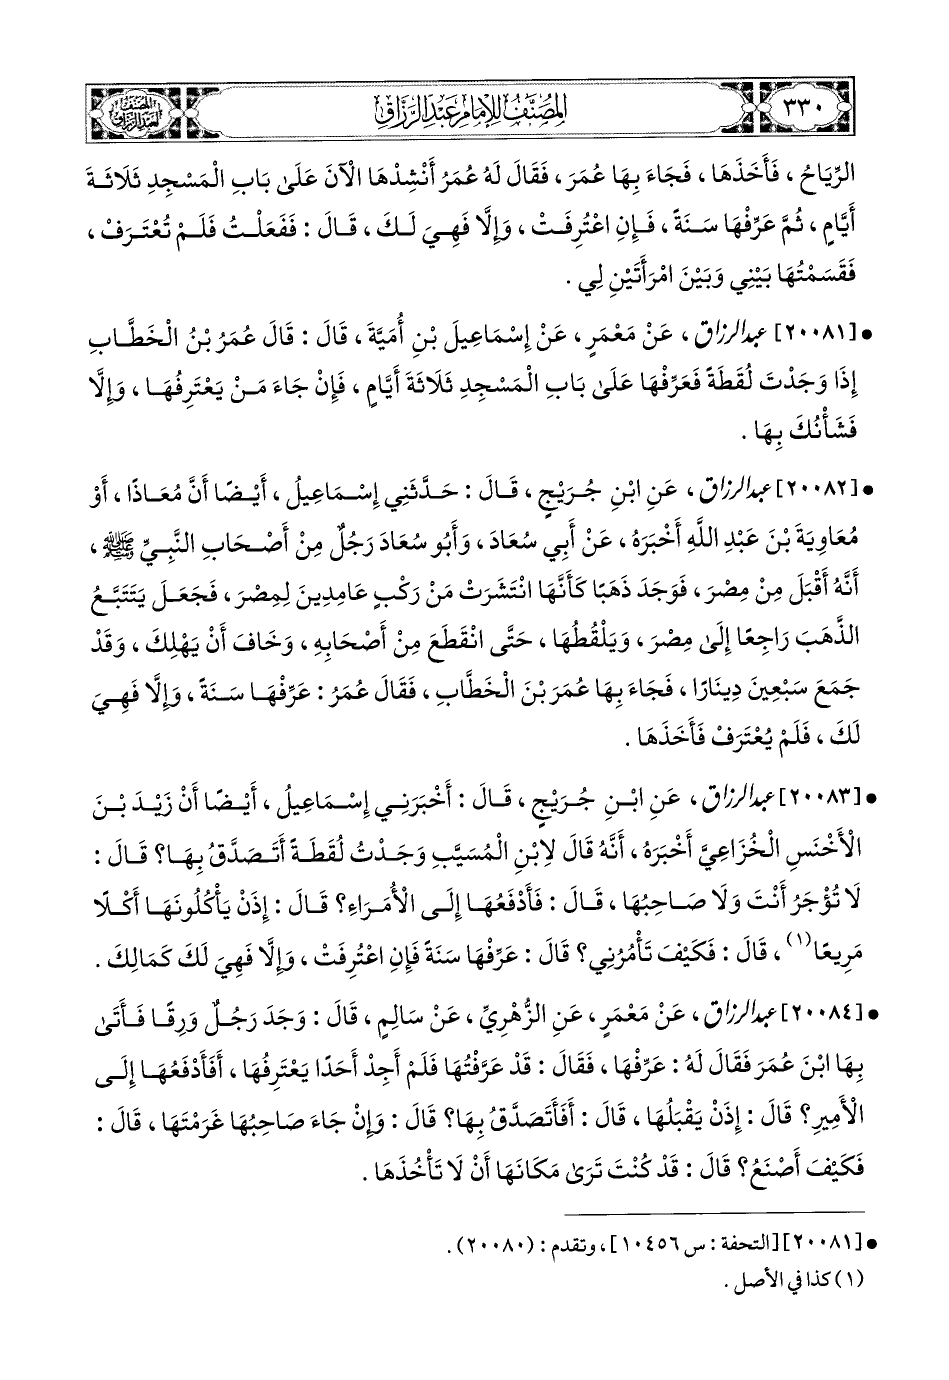 ٣٣٠
المصنف للإمام عبد الرزاق
المصنف لعبد الرزاق
الرِّيَاحُ ، فَأَخَذَهَا ، فَجَاءَ بِهَا عُمَرَ ، فَقَالَ لَهُ عُمَرُ أَنْشِدْهَا الْآنَ عَلَىٰ بَابِ الْمَسْجِدِ ثَلَاثَةَ
أَيَّامٍ ، ثُمَّ عَرِّفْهَا سَنَةً ، فَإِنِ اعْتُرِفَتْ ، وَإِلَّا فَهِيَ لَكَ ، قَالَ : فَفَعَلْتُ فَلَمْ تُعْتَرَفْ ،
فَقَسَمْتُهَا بَيْنِي وَبَيْنَ امْرَأَتَيْنِ لِي .
• [٢٠٠٨١] عبد الرزاق ، عَنْ مَعْمَرٍ ، عَنْ إِسْمَاعِيلَ بْنِ أُمَيَّةَ ، قَالَ : قَالَ عُمَرُ بْنُ الْخَطَّابِ
إِذَا وَجَدْتَ لُقَطَةً فَعَرِّفْهَا عَلَىٰ بَابِ الْمَسْجِدِ ثَلَاثَةَ أَيَّامٍ ، فَإِنْ جَاءَ مَنْ يَعْتَرِفُهَا ، وَإِلَّا
فَشَأْنُكَ بِهَا .
• [٢٠٠٨٢] عبد الرزاق ، عَنِ ابْنِ جُرَيْجٍ ، قَالَ : حَدَّثَنِي إِسْمَاعِيلُ ، أَيْضًا أَنَّ مُعَاذًا ، أَوْ
مُعَاوِيَةَ بْنَ عَبْدِ اللَّهِ أَخْبَرَهُ ، عَنْ أَبِي سُعَادَ ، وَأَبُو سُعَادَ رَجُلٌ مِنْ أَصْحَابِ النَّبِيِّ ﷺ ،
أَنَّهُ أَقْبَلَ مِنْ مِصْرَ ، فَوَجَدَ ذَهَبًا كَأَنَّهَا انْتَشَرَتْ مَنْ رَكْبٍ عَامِدِينَ لِمِصْرَ ، فَجَعَلَ يَتَتَبَّعُ
الذَّهَبَ رَاجِعًا إِلَىٰ مِصْرَ ، وَيَلْقُطُهَا ، حَتَّى انْقَطَعَ مِنْ أَصْحَابِهِ ، وَخَافَ أَنْ يَهْلِكَ ، وَقَدْ
جَمَعَ سَبْعِينَ دِينَارًا ، فَجَاءَ بِهَا عُمَرَ بْنَ الْخَطَّابِ ، فَقَالَ عُمَرُ : عَرِّفْهَا سَنَةً ، وَإِلَّا فَهِيَ
لَكَ ، فَلَمْ يُعْتَرَفْ فَأَخَذَهَا .
• [٢٠٠٨٣] عبد الرزاق ، عَنِ ابْنِ جُرَيْجٍ ، قَالَ : أَخْبَرَنِي إِسْمَاعِيلُ ، أَيْضًا أَنْ زَيْدَ بْنَ
الْأَخْنَسِ الْخُزَاعِيَّ أَخْبَرَهُ ، أَنَّهُ قَالَ لِابْنِ الْمُسَيَّبِ وَجَدْتُ لُقَطَةً أَتَصَدَّقُ بِهَا؟ قَالَ :
لَا تُؤْجَرُ أَنْتَ وَلَا صَاحِبُهَا ، قَالَ : فَأَدْفَعُهَا إِلَى الْأُمَرَاءِ؟ قَالَ : إِذَنْ يَأْكُلُونَهَا أَكْلًا
مَرِيعًا(١) ، قَالَ : فَكَيْفَ تَأْمُرُنِي؟ قَالَ : عَرِّفْهَا سَنَةً فَإِنِ اعْتُرِفَتْ ، وَإِلَّا فَهِيَ لَكَ كَمَالِكَ .
• [٢٠٠٨٤] عبد الرزاق ، عَنْ مَعْمَرٍ ، عَنِ الزُّهْرِيِّ ، عَنْ سَالِمٍ ، قَالَ : وَجَدَ رَجُلٌ وَرِقًا فَأَتَىٰ
بِهَا ابْنَ عُمَرَ فَقَالَ لَهُ : عَرِّفْهَا ، فَقَالَ : قَدْ عَرَّفْتُهَا فَلَمْ أَجِدْ أَحَدًا يَعْتَرِفُهَا ، أَفَأَدْفَعُهَا إِلَى
الْأَمِيرِ؟ قَالَ : إِذَنْ يَقْبَلُهَا ، قَالَ : أَفَأَتَصَدَّقُ بِهَا؟ قَالَ : وَإِنْ جَاءَ صَاحِبُهَا غَرِمْتَهَا ، قَالَ :
فَكَيْفَ أَصْنَعُ؟ قَالَ : قَدْ كُنْتَ تَرَىٰ مَكَانَهَا أَنْ لَا تَأْخُذَهَا .
• [٢٠٠٨١] [التحفة : س ١٠٤٥٦] ، وتقدم : (٢٠٠٨٠) .
(١) كذا في الأصل .